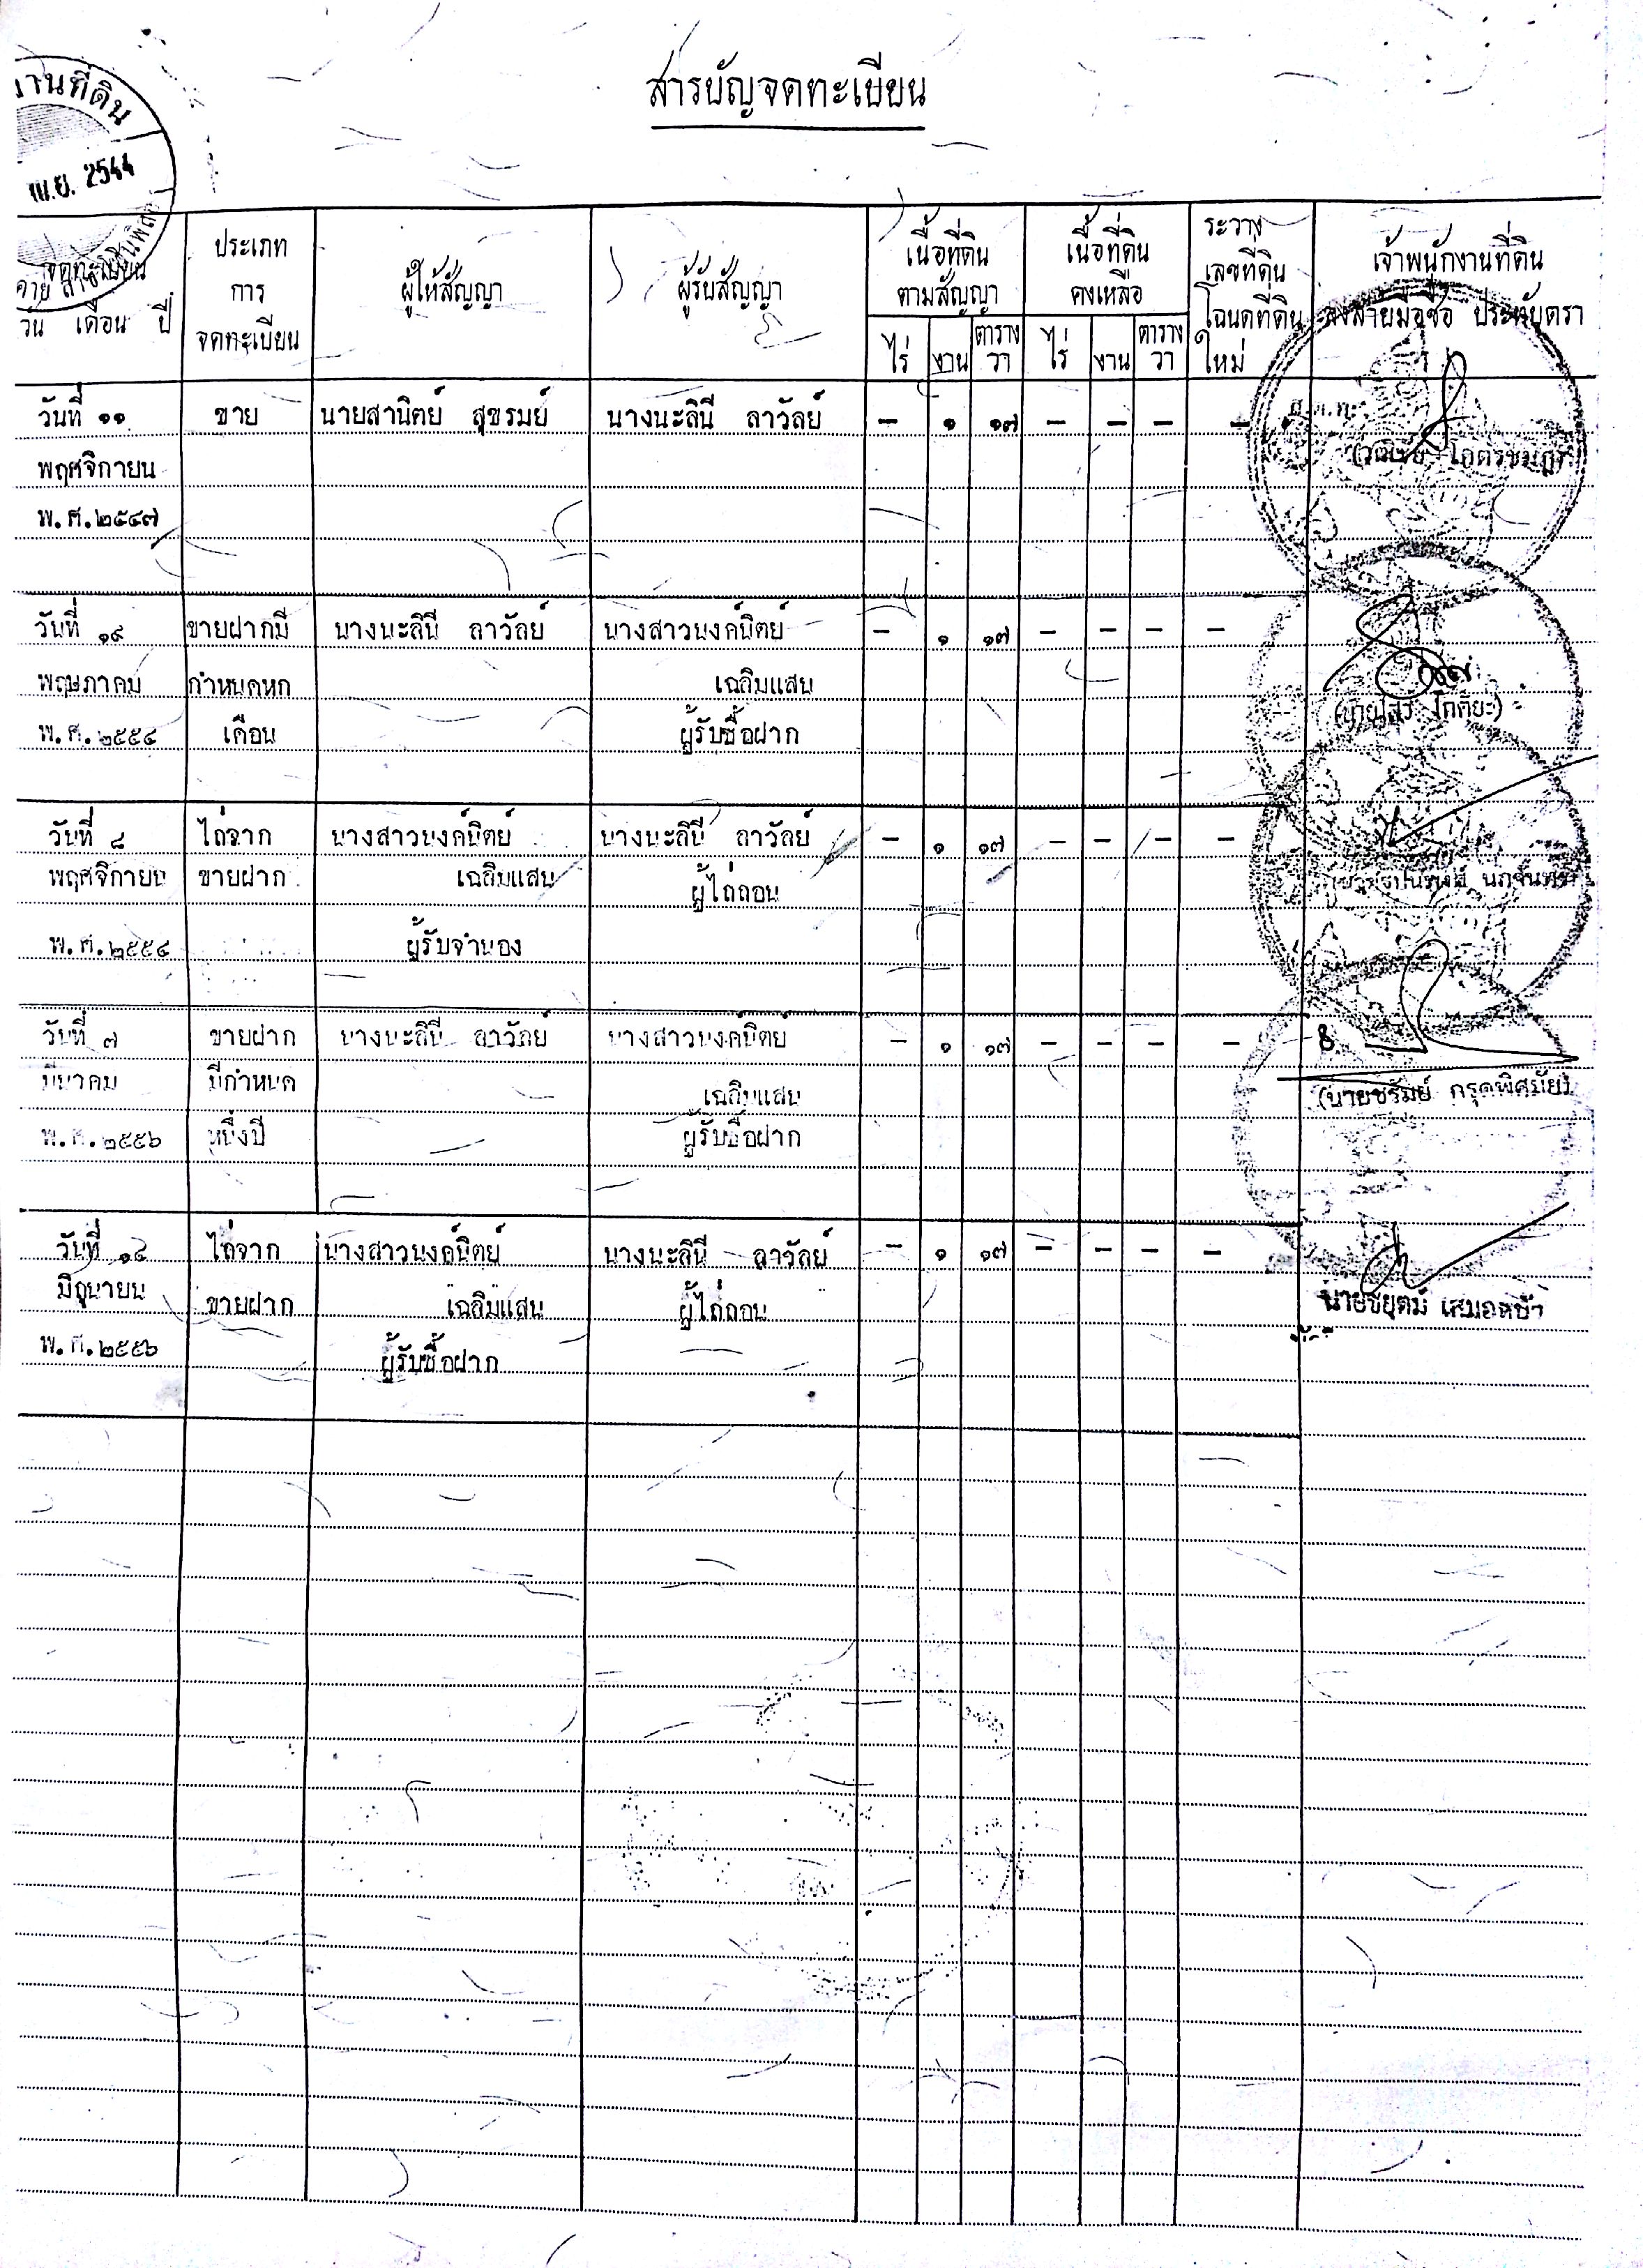 สารบัญจดทะเบียน
งานที่ดิน
เม.ย. 2544
จดทะเบียน
วัน เดือน ปี
ประเภท
การ
จดทะเบียน
ผู้ให้สัญญา
ผู้รับสัญญา
เนื้อที่ดิน
ตามสัญญา
ไร่ งาน ตาราง
วา
เนื้อที่ดิน
คงเหลือ
ไร่ งาน ตาราง
วา
ระวาง
เลขที่ดิน
โฉนดที่ดิน
ใหม่
เจ้าพนักงานที่ดิน
ลงลายมือชื่อ ประทับตรา
วันที่ ๑๑ ขาย นายสานิตย์ สุขรมย์ นางนะลินี ลาวัลย์ – ๑ ๑๗ – – – –
พฤศจิกายน
พ.ศ.๒๕๔๗
วันที่ ๑๙ ขายฝากมี นางนะลินี ลาวัลย์ นางสาวนงค์นิตย์ – ๑ ๑๗ – – – –
พฤษภาคม กำหนดหก เฉลิมแสน
พ.ศ.๒๕๕๔ เดือน ผู้รับซื้อฝาก
วันที่ ๘ ไถ่จาก นางสาวนงค์นิตย์ นางนะลินี ลาวัลย์ – ๑ ๑๗ – – – –
พฤศจิกายน ขายฝาก เฉลิมแสน ผู้ไถ่ถอน
พ.ศ.๒๕๕๔ ผู้รับจำนอง
วันที่ ๗ ขายฝาก นางนะลินี ลาวัลย์ นางสาวนงค์นิตย์ – ๑ ๑๗ – – – –
มีนาคม มีกำหนด เฉลิมแสน
(นายชรัมย์ กรุดพิศมัย)
พ.ศ.๒๕๕๖ หนึ่งปี ผู้รับซื้อฝาก
วันที่ ๑๔ ไถ่จาก นางสาวนงค์นิตย์ นางนะลินี ลาวัลย์ – ๑ ๑๗ – – – –
มิถุนายน ขายฝาก เฉลิมแสน ผู้ไถ่ถอน
นายชยุตม์
พ.ศ.๒๕๕๖ ผู้รับซื้อฝาก